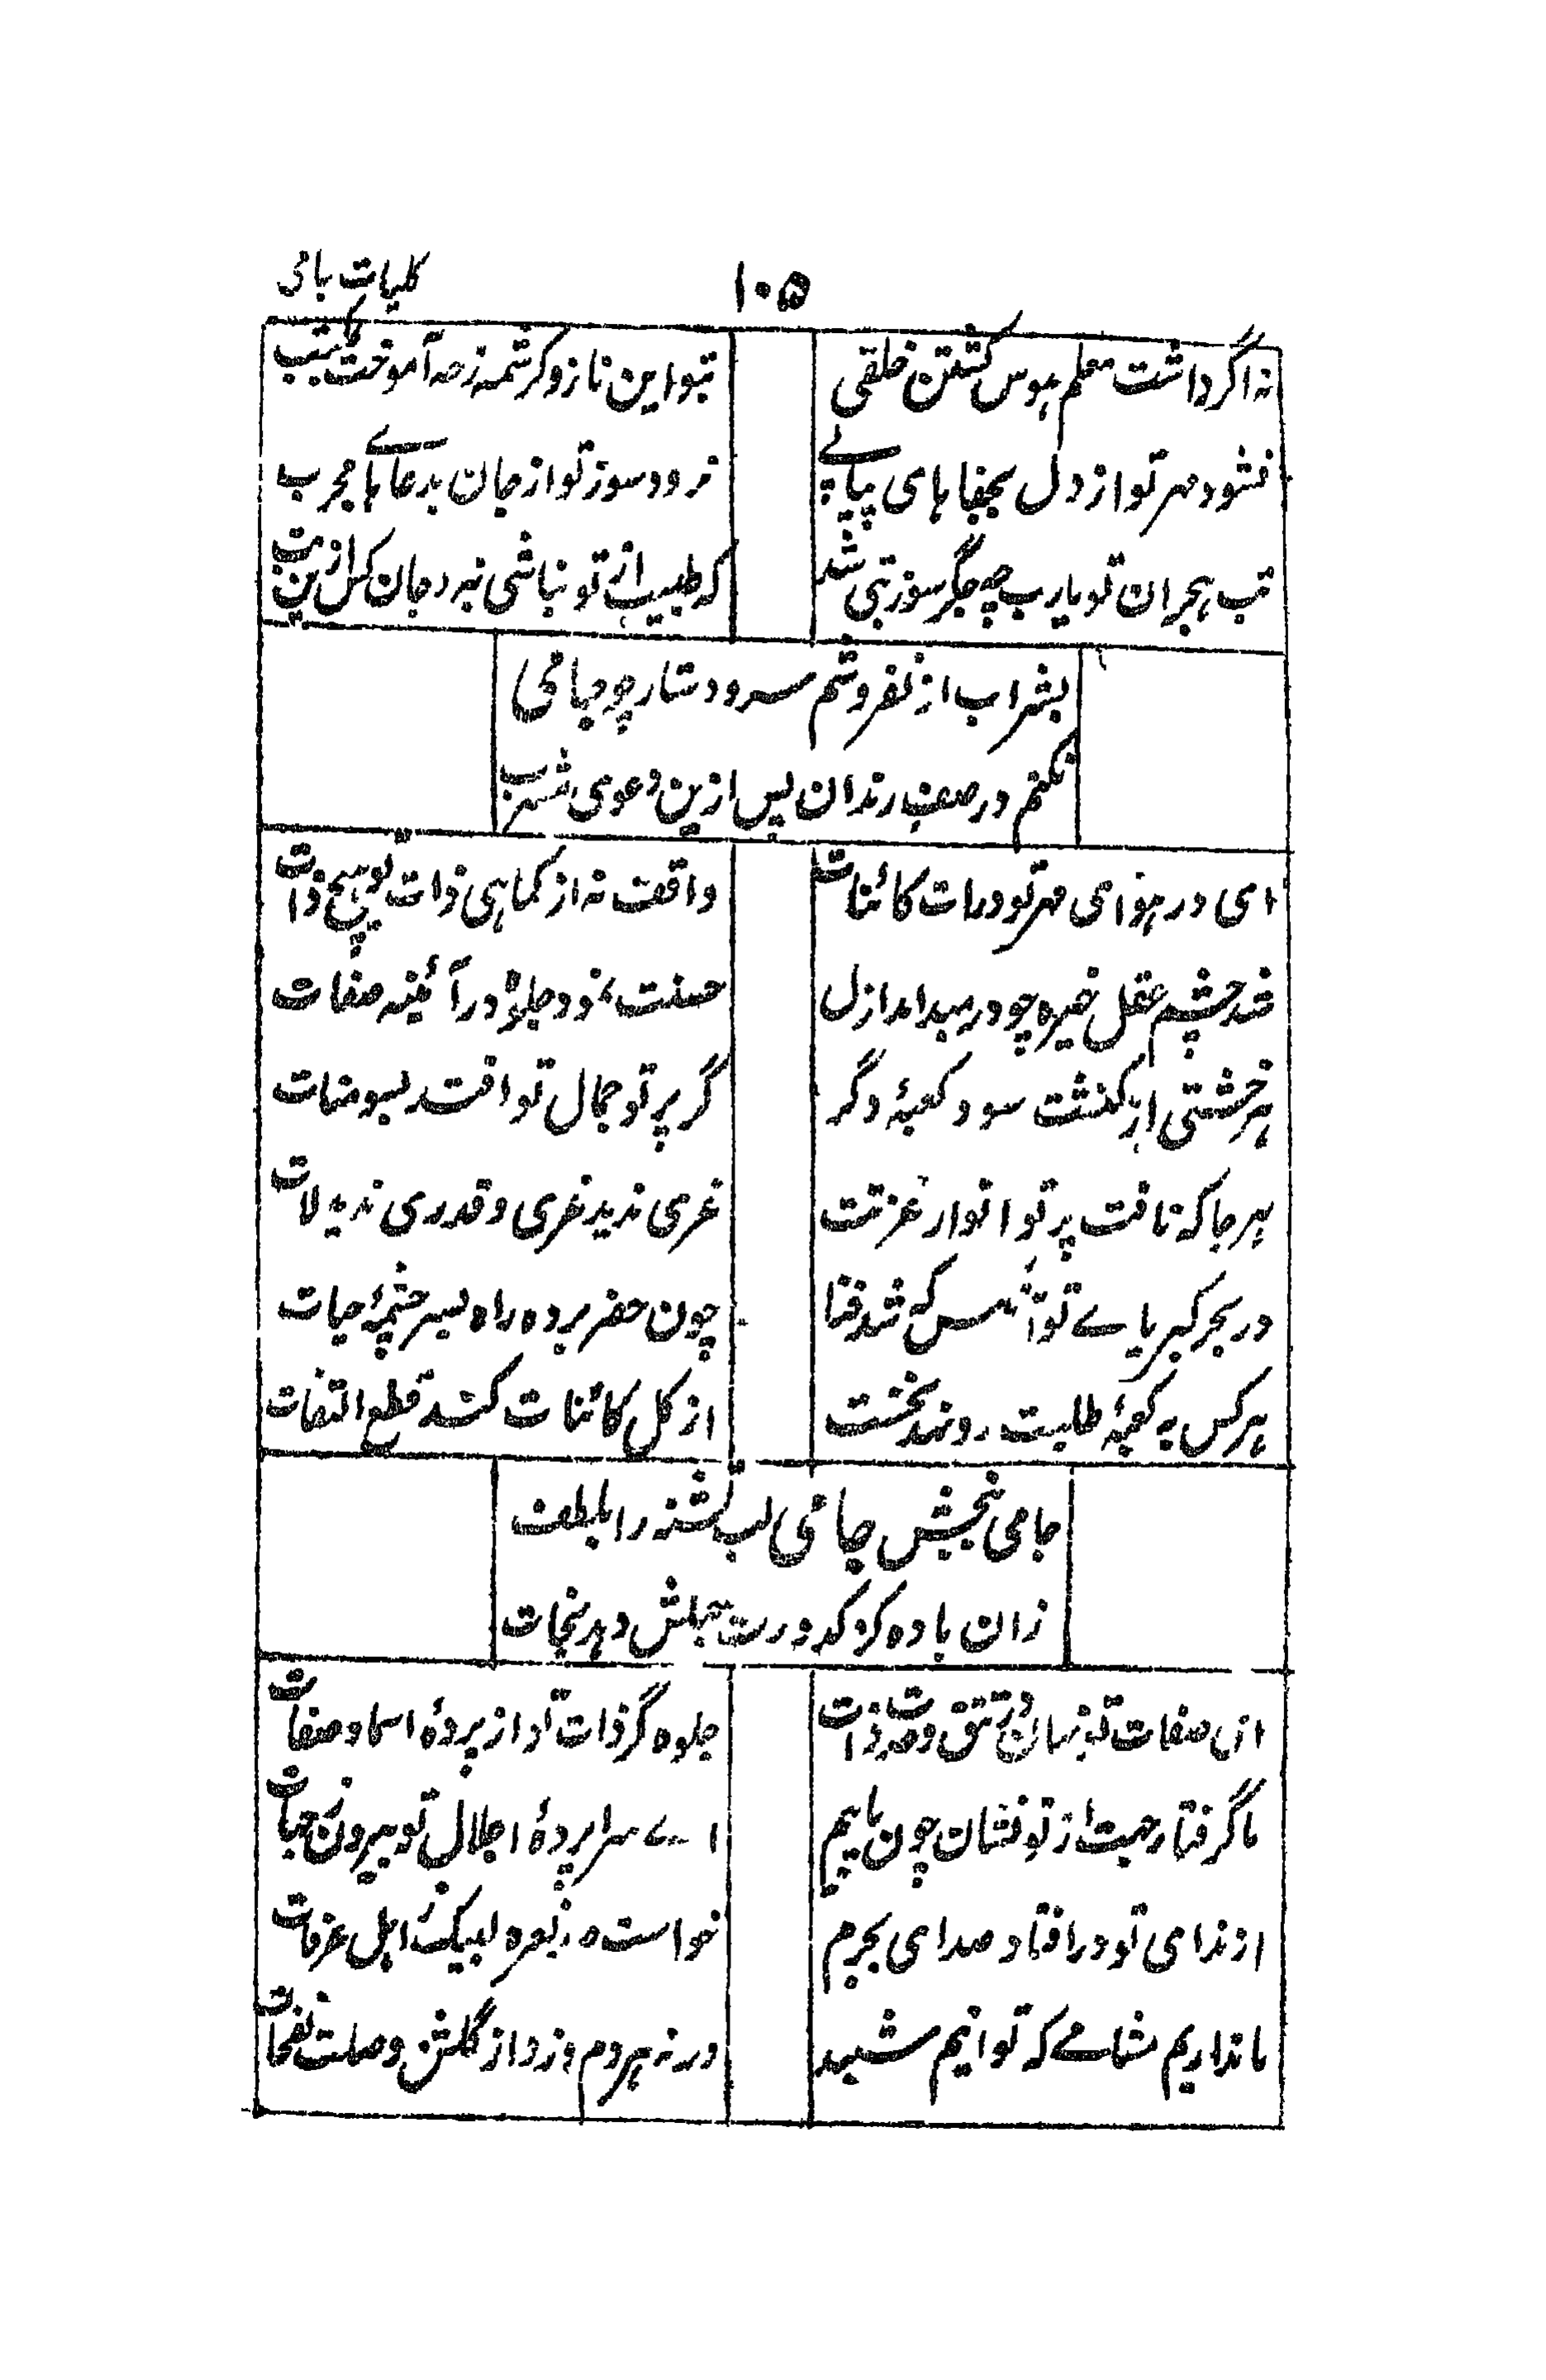 ۱۰۵
کلیات جامی
نه اگر داشت معلم هوس کشتن خلقی
بتو این ناز و کرشمه ز چه آموخت بمکتب
نشود مهر تو از دل بجفاهای پیاپے
نرود سوز تو از جان بدعاهاے مجرب
تب هجران تو یارب چه جگر سوز تبی شد
که طبیب ار تو نباشی نبرد جان کس ازین تب
بشراب ار نفروشم سر و دستار چو جامی
نکنم در صف رندان پس ازین دعوی مشرب
ای در هوای مهر تو ذرات کائنات
واقف نه از کماهی ذات تو هیچ ذات
شد چشم عقل خیره چو در مبداء ازل
حسنت نمود جلوهٔ در آئینه صفات
هر خشتی از کنشت شود کعبهٔ دگر
گر پرتو جمال تو افتد بسومنات
هر جا که تافت پرتو انوار عزتت
عزی ندید عزی و قدری ندید لات
در بحر کبریاے تو آنکس که شد فنا
چون خضر برده راه بسر چشمهٔ حیات
هر کس به کعبهٔ طلبت رو نهد نخست
از کل کائنات کند قطع التفات
جامی ببخش جامی لب تشنه را بلطف
زان باده کز کدورت جهلش دهد نجات
ای صفات تو نهان در تتق وحدت ذات
جلوه گر ذات تو از پردهٔ اسما و صفات
ما گرفتار جهت از تو نشان چون یابیم
اے سراپردهٔ اجلال تو بیرون ز جهات
از ندای تو در افتاد صدای بحرم
خواست صد نعره لبیک ز اهل عرفات
ما نداریم مشامے که توانیم شنید
ورنه هر دم وزد از گلشن وصلت نفحات